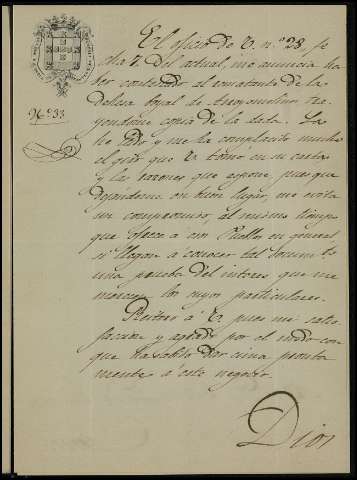 El oficio de V. n.º 28, fe
cha 7. del actual, me anuncia ha
ber contestado al rematante de la
Dehesa Boyal de
copia de la data. La
Nº 33
he leido y me ha complacido mucho
el giro que V. tomó en su carta
y las razones que expone, pues que
dejandome en buen lugar, me evita
un compromiso, al mismo tiempo
que ofrece á ese Pueblo en general
si llegan á conocer tal docum.to
una prueba del interes que me
merecen los suyos particulares.
Reitero á V. pues mi satis
faccion y agrado por el modo con
que ha sabido dar cima pronta
mente á este negocio.
Dios